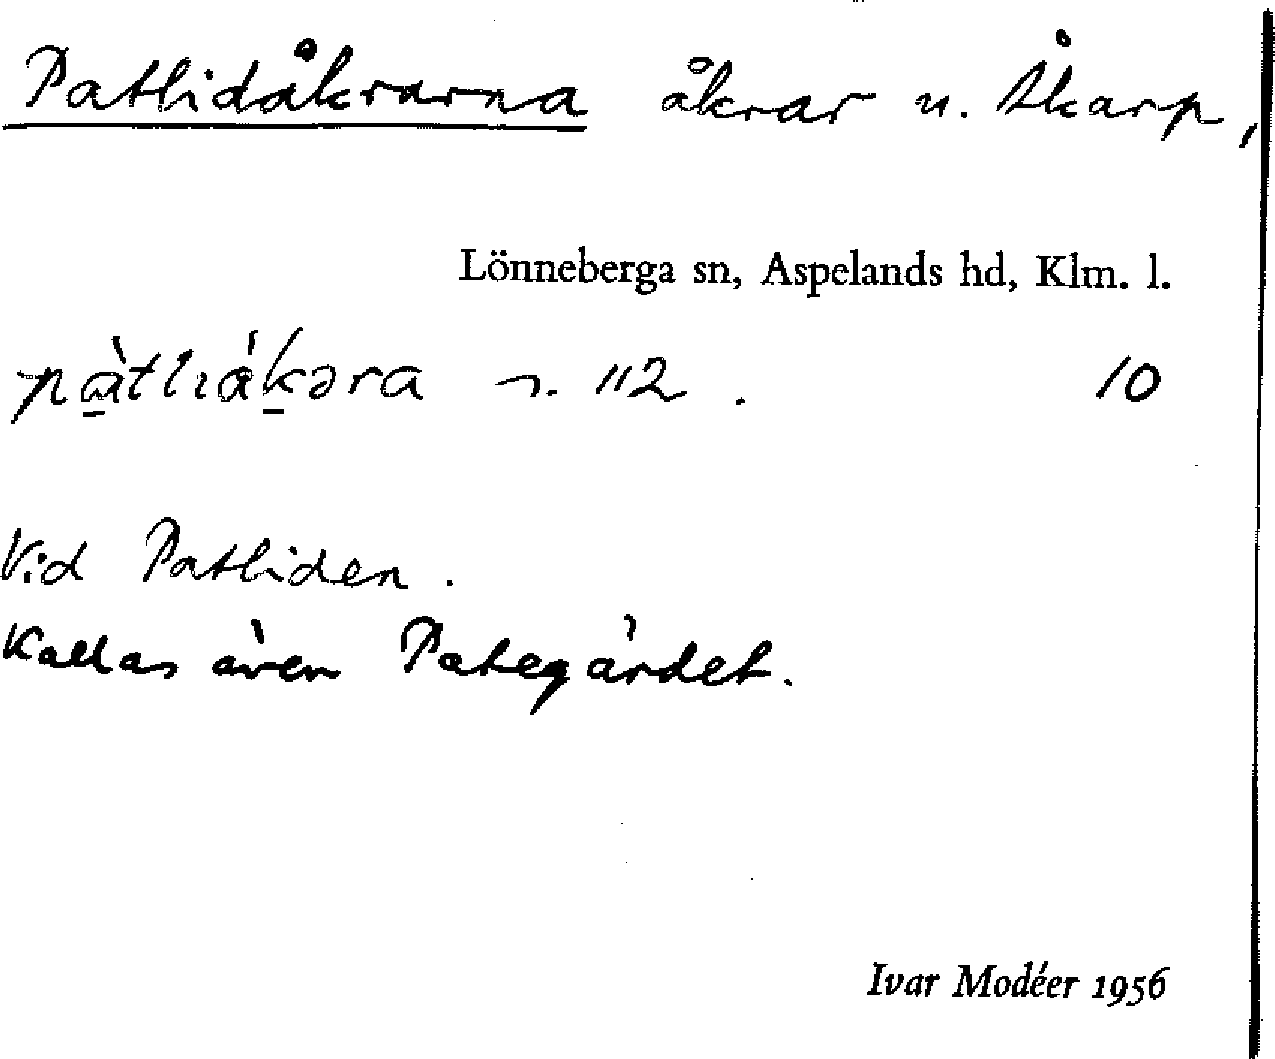 Patlidåkrarna åkrar u. Åkarp,
Lönneberga sn, Aspelands hd, Klm. l.
112. 10
Vid Patliden.
Kallas även Pategärdet.
Ivar Modéer 1956